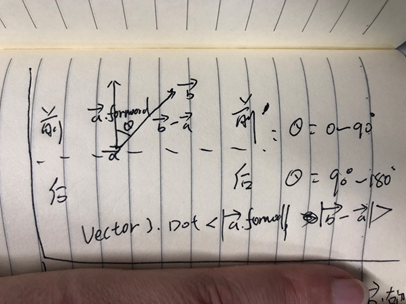 前 a.forward θ b
a b-a 前: θ = 0-90°
后 后 θ = 90°-180°
Vector3.Dot <|a.forward| |b-a|>